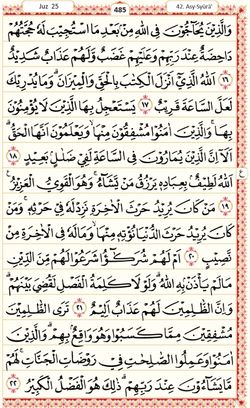 Juz 25
485
42. Asy-Syūrā'
وَالَّذِيْنَ يُحَاۤجُّوْنَ فِى اللّٰهِ مِنْۢ بَعْدِ مَا اسْتُجِيْبَ لَهٗ حُجَّتُهُمْ
دَاحِضَةٌ عِنْدَ رَبِّهِمْ وَعَلَيْهِمْ غَضَبٌ وَّلَهُمْ عَذَابٌ شَدِيْدٌ
١٦ اَللّٰهُ الَّذِيْٓ اَنْزَلَ الْكِتٰبَ بِالْحَقِّ وَالْمِيْزَانَ ۗ وَمَا يُدْرِيْكَ
لَعَلَّ السَّاعَةَ قَرِيْبٌ ١٧ يَسْتَعْجِلُ بِهَا الَّذِيْنَ لَا يُؤْمِنُوْنَ
بِهَا ۚ وَالَّذِيْنَ اٰمَنُوْا مُشْفِقُوْنَ مِنْهَاۙ وَيَعْلَمُوْنَ اَنَّهَا الْحَقُّ ۗ
اَلَآ اِنَّ الَّذِيْنَ يُمَارُوْنَ فِى السَّاعَةِ لَفِيْ ضَلٰلٍۢ بَعِيْدٍ ١٨
اَللّٰهُ لَطِيْفٌۢ بِعِبَادِهٖ يَرْزُقُ مَنْ يَّشَاۤءُ ۚ وَهُوَ الْقَوِيُّ الْعَزِيْزُ
١٩ مَنْ كَانَ يُرِيْدُ حَرْثَ الْاٰخِرَةِ نَزِدْ لَهٗ فِيْ حَرْثِهٖ ۚ وَمَنْ
كَانَ يُرِيْدُ حَرْثَ الدُّنْيَا نُؤْتِهٖ مِنْهَاۙ وَمَا لَهٗ فِى الْاٰخِرَةِ مِنْ
نَّصِيْبٍ ٢٠ اَمْ لَهُمْ شُرَكٰۤؤُا شَرَعُوْا لَهُمْ مِّنَ الدِّيْنِ
مَا لَمْ يَأْذَنْۢ بِهِ اللّٰهُ ۗ وَلَوْلَا كَلِمَةُ الْفَصْلِ لَقُضِيَ بَيْنَهُمْ ۗ
وَاِنَّ الظّٰلِمِيْنَ لَهُمْ عَذَابٌ اَلِيْمٌ ٢١ تَرَى الظّٰلِمِيْنَ
مُشْفِقِيْنَ مِمَّا كَسَبُوْا وَهُوَ وَاقِعٌۢ بِهِمْ ۗ وَالَّذِيْنَ
اٰمَنُوْا وَعَمِلُوا الصّٰلِحٰتِ فِيْ رَوْضٰتِ الْجَنّٰتِ ۚ لَهُمْ
مَّا يَشَاۤءُوْنَ عِنْدَ رَبِّهِمْ ۗ ذٰلِكَ هُوَ الْفَضْلُ الْكَبِيْرُ ٢٢